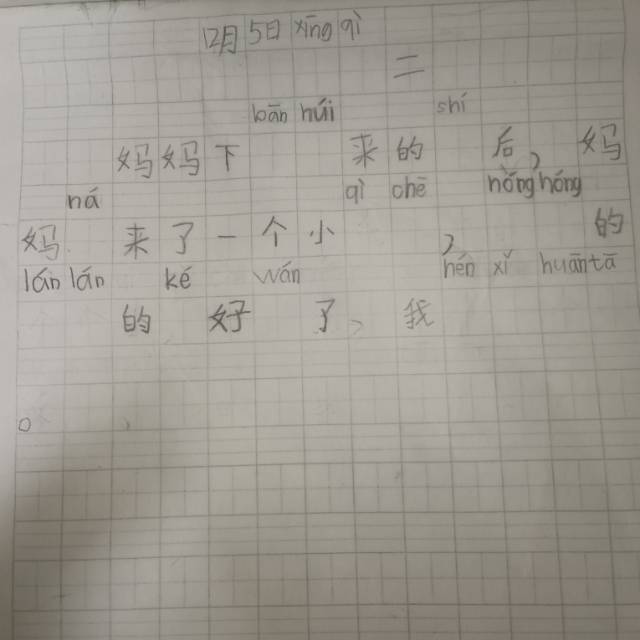 12月5日 xīng qì
二
bān húi shí
妈妈下 来的 后，妈
ná qì chē hóng hóng
妈 来了一个小 ， 的
lán lán ké wán hěn xǐ huān tā
的 好 了、我
。